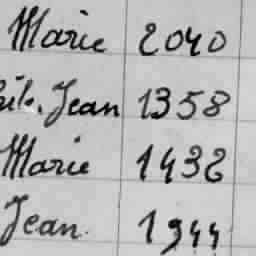 Marie 2040
Jean 1358
Marie 1432
Jean. 1944